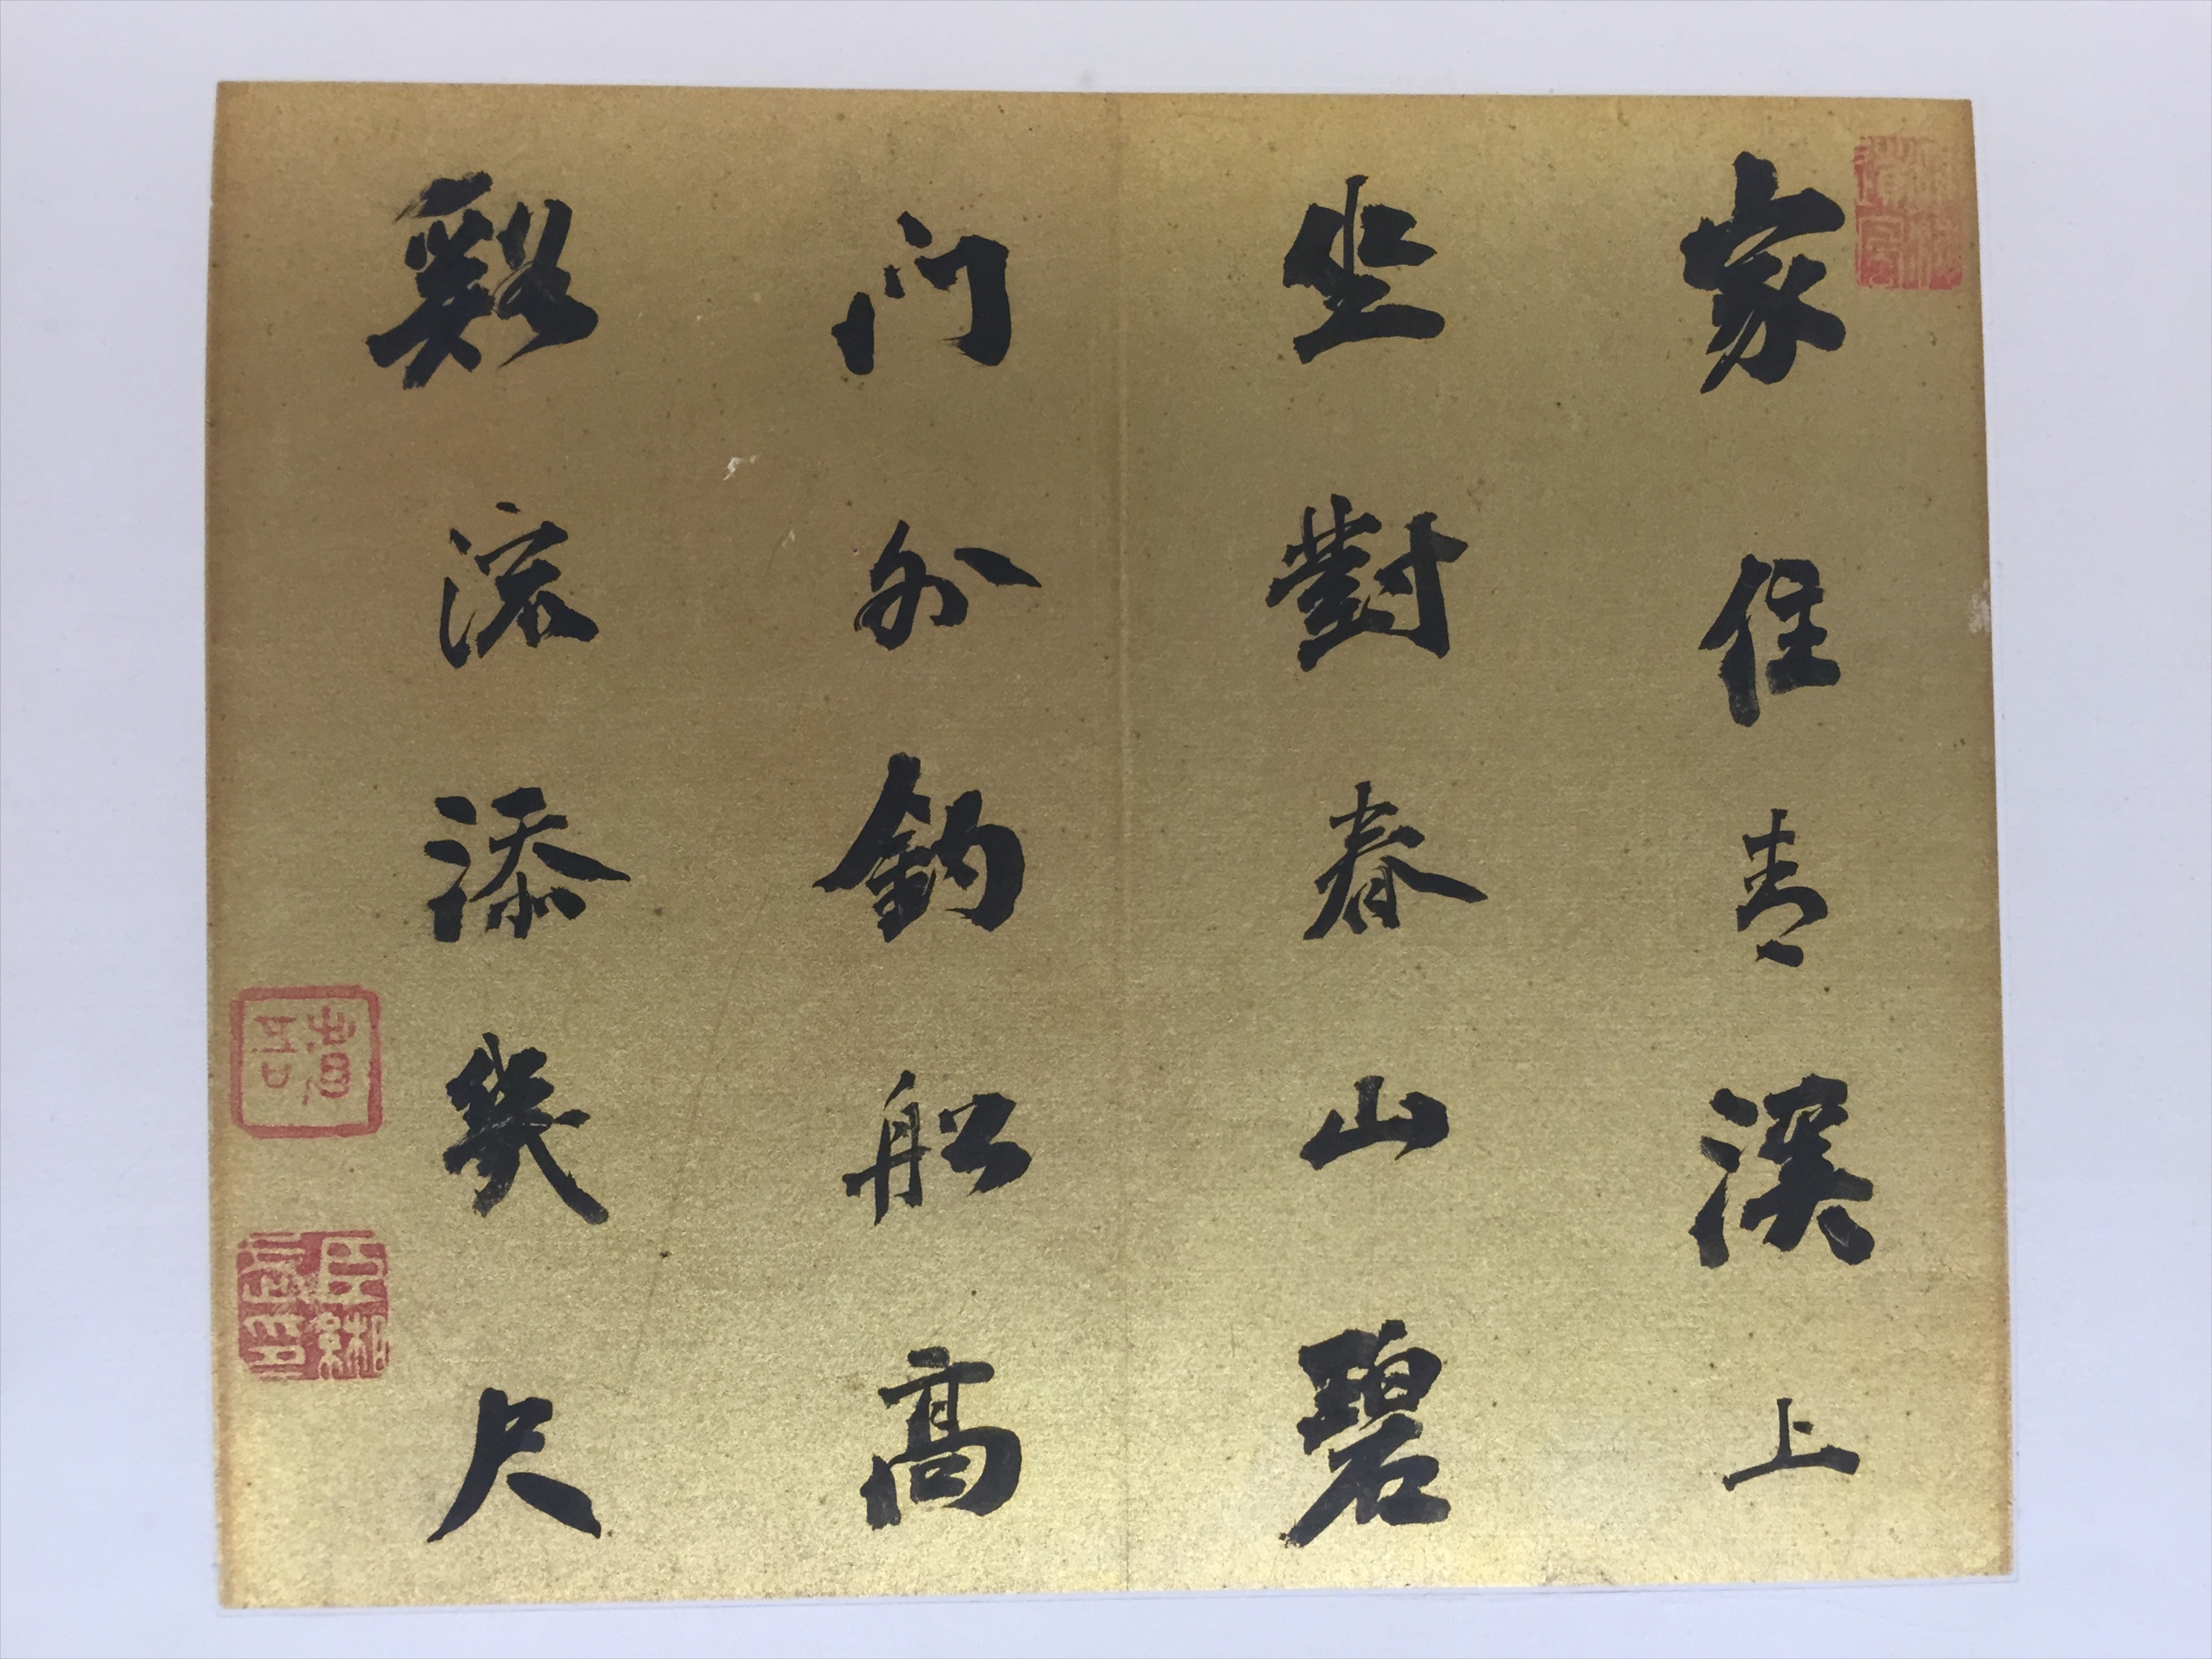 家住青溪上
坐對春山碧
门外釣船高
谿流添幾尺